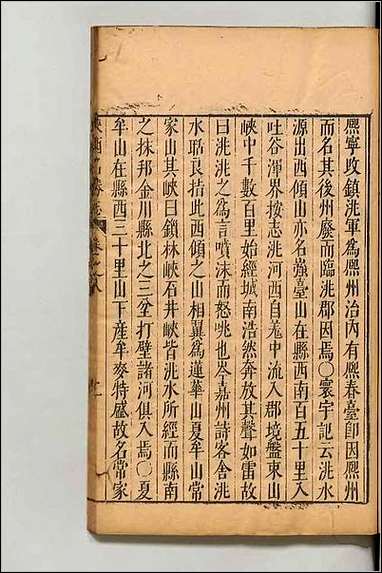 熙寧收鎮洮軍為熙州治內有熙春臺卽因熙州
而名其後州廢而臨洮郡因焉〇寰宇記云洮水
源出西傾山亦名强臺山在縣西南百五十里入
吐谷渾界按志洮河西自羌中流入郡境盤束山
峽中千數百里始經城南浩然奔放其聲如雷故
曰洮洮之為言噴沫而怒咷也岑嘉州詩客舍洮
水聒良搘此西傾之山相翼為蓮華山夏牟山常
家山其峽曰鎖林峽石井峽皆洮水所經而縣南
之抹邦金川縣北之三坌打壁諸河俱入焉〇夏
牟山在縣西三十里山下產牟麥特盛故名常家